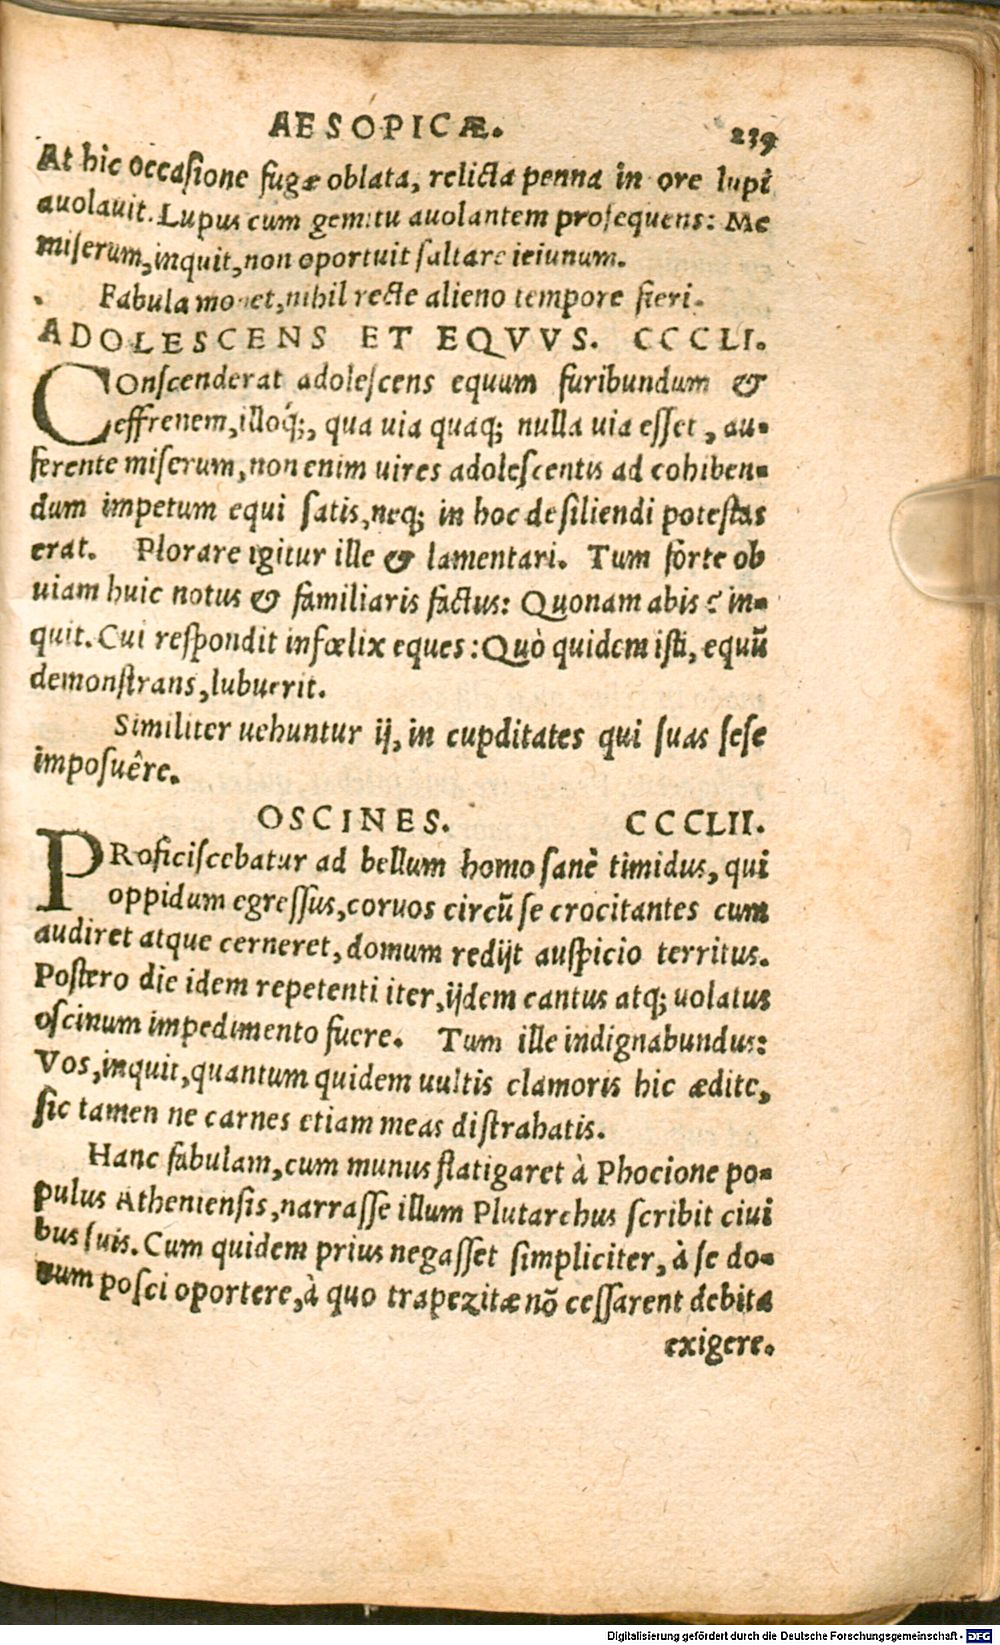 AESOPICÆ. 239
At hic occasione fugæ oblata, relicta penna in ore lupi
avolavit. Lupus cum gemitu avolantem prosequens: Me
miserum, inquit, non oportuit saltare ieiunum.
Fabula monet, nihil recte alieno tempore fieri.
ADOLESCENS ET EQVVS. CCCLI.
COnscenderat adolescens equum furibundum &
effrenem, illoq́;, qua uia quaq; nulla uia esset, au-
ferente miserum, non enim uires adolescentis ad cohiben-
dum impetum equi satis, neq; in hoc desiliendi potestas
erat. Plorare igitur ille & lamentari. Tum forte ob
uiam huic notus & familiaris factus: Quonam abis? in-
quit. Cui respondit infœlix eques: Quò quidem isti, equũ
demonstrans, lubuerit.
Similiter uehuntur ij, in cupditates qui suas sese
imposuêre.
OSCINES. CCCLII.
PRoficiscebatur ad bellum homo sanè timidus, qui
oppidum egressus, corvos circũ se crocitantes cum
audiret atque cerneret, domum redijt auspicio territus.
Postero die idem repetenti iter, ijdem cantus atq; uolatus
oscinum impedimento fuere. Tum ille indignabundus:
Vos, inquit, quantum quidem uultis clamoris hic ædite,
sic tamen ne carnes etiam meas distrahatis.
Hanc fabulam, cum munus flatigaret à Phocione po-
pulus Atheniensis, narrasse illum Plutarchus scribit ciui
bus suis. Cum quidem prius negasset simpliciter, à se do-
num posci oportere, à quo trapezitæ nõ cessarent debita
exigere.
Digitalisierung gefördert durch die Deutsche Forschungsgemeinschaft - DFG